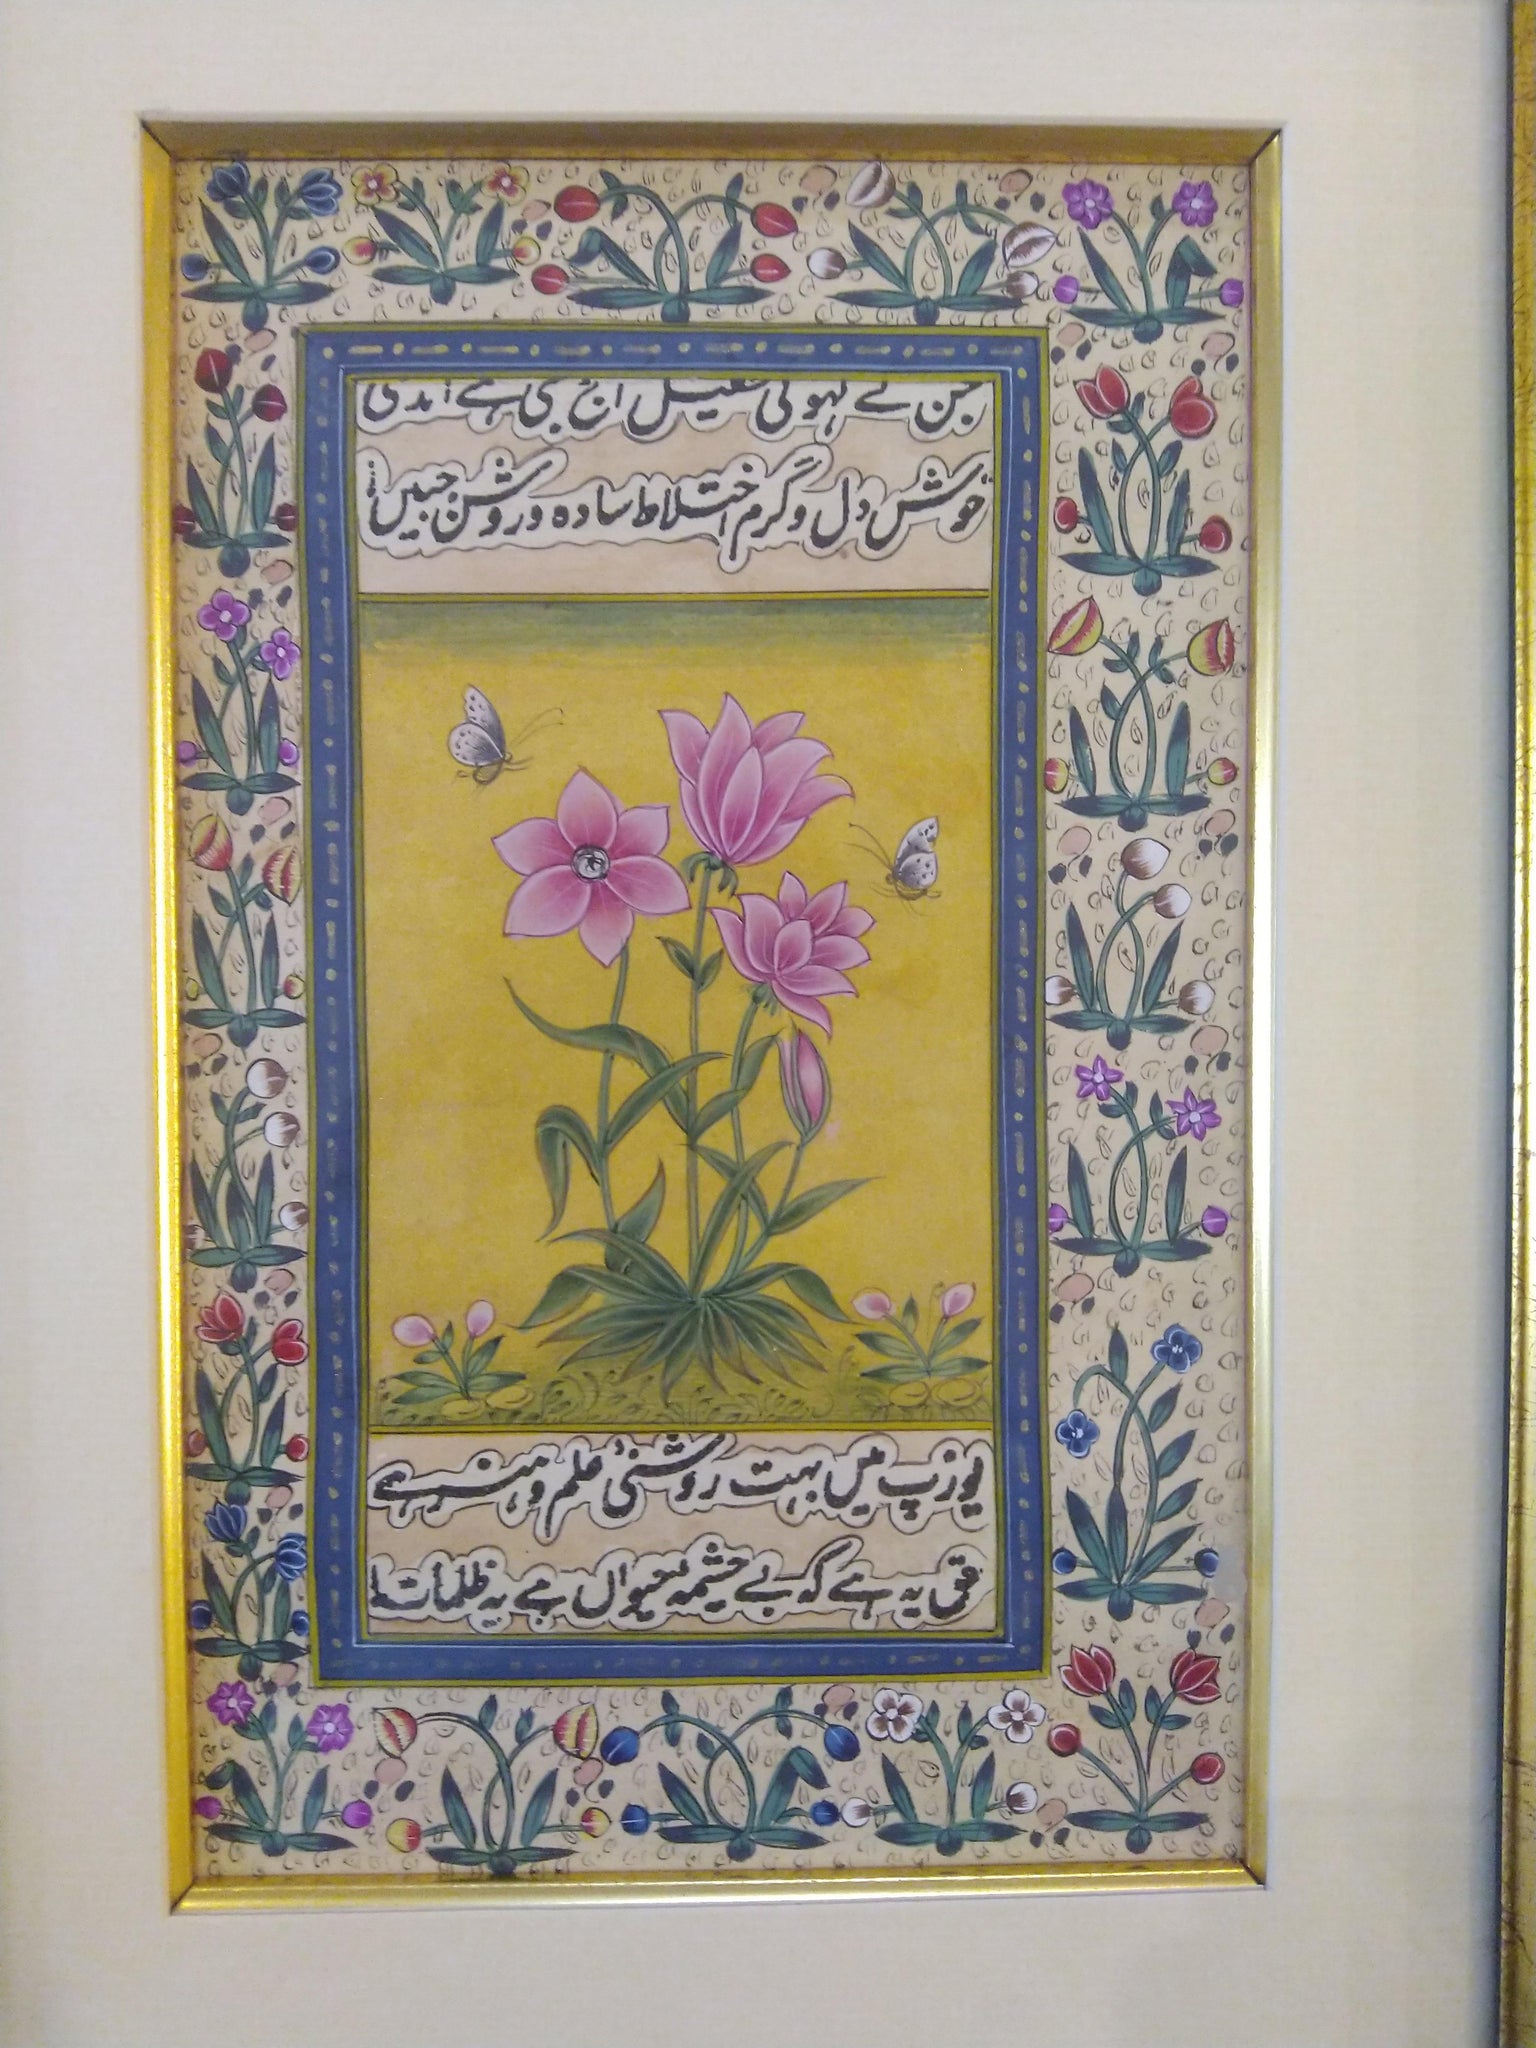 جن کے لہو کی طفیل آج بھی ہے
خوش دل و گرم اختلاط سادہ و روشن جبیں
یورپ میں بہت روشنیٔ علم و ہنر ہے
حق یہ ہے کہ بے چشمۂ حیواں ہے یہ ظلمات